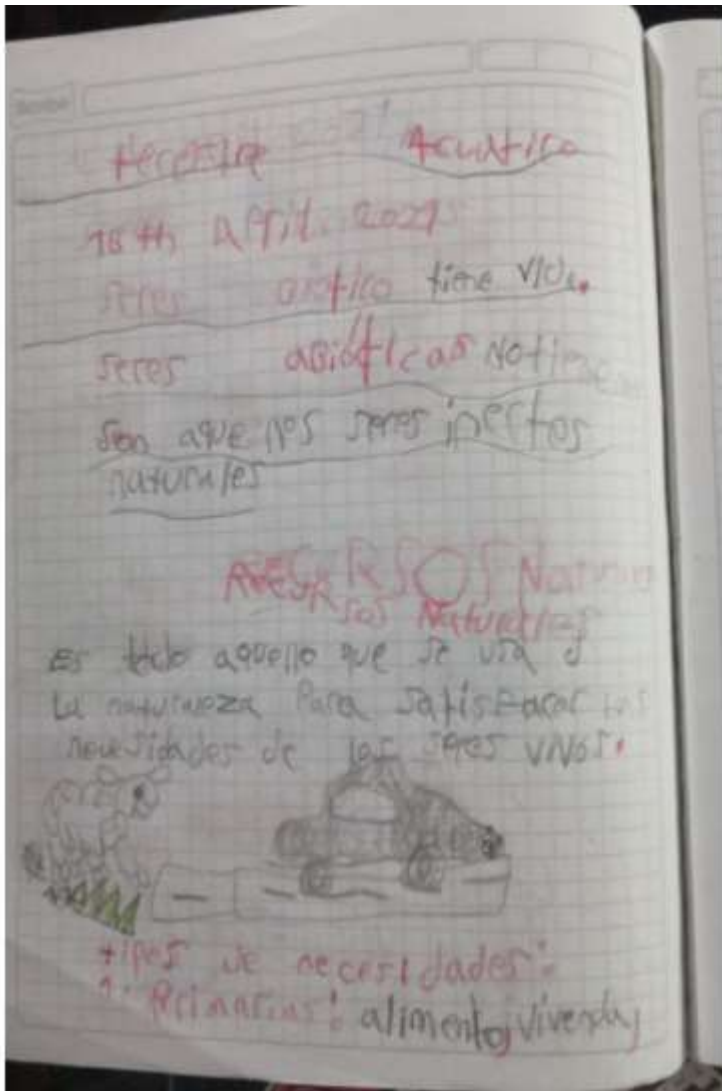 terestre Acuatico
18th April 2021
seres biotico tiene vida.
seres abióticas No tiene
son aquellos seres inertos
naturales
Recursos Naturales
Es todo aquello que se usa d
La naturaleza Para Satisfacer las
necesidades de los seres vivos.
tipos de necesidades:
1. Primarias: alimento, vivenda,